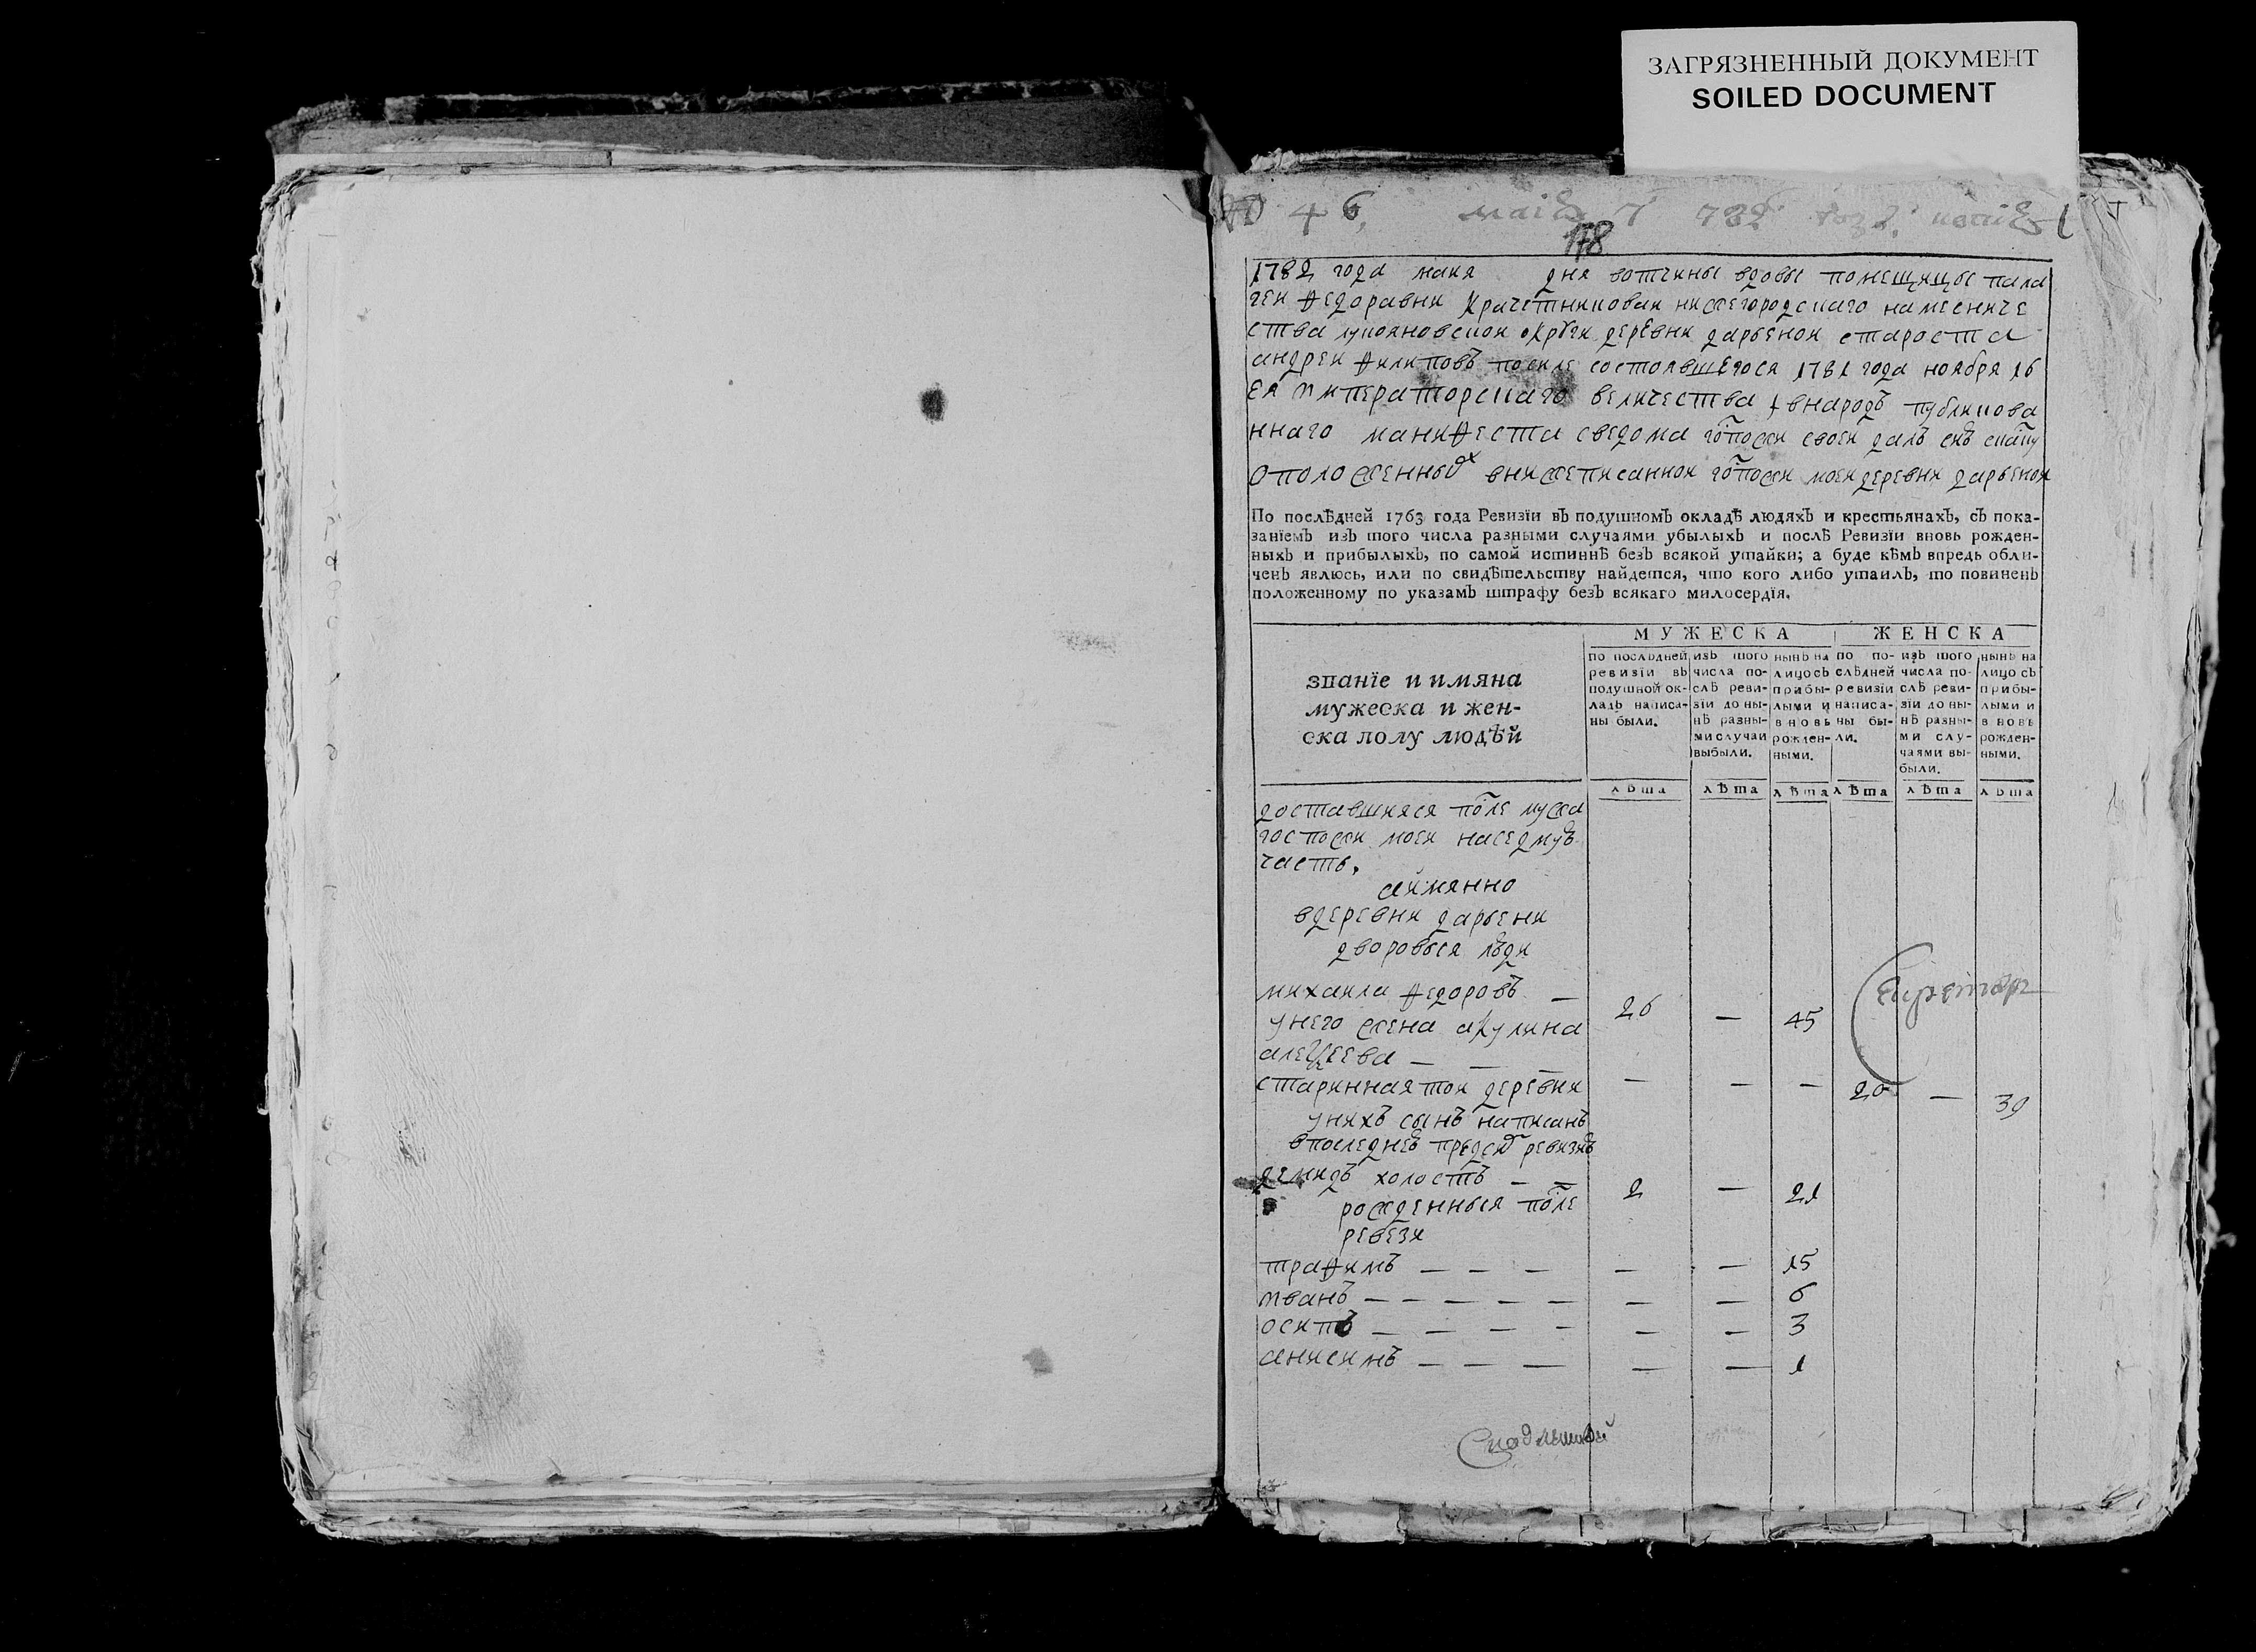 ЗАГРЯЗНЕННЫЙ ДОКУМЕНТ
SOILED DOCUMENT
46
178
1782 года маия дня вотчины вдовы помещицы пала
геи федоравны нижегородскаго намеснече
ства деревни старосты
андреи филиповъ после состоявшегося 1781 года ноября 16
ея императорскаго величества внародъ публикова
ннаго манифеста сведома гспожи своеи далъ сию скаску
оположенныхъ внижеписаннои гспожи моеи деревни
По послѣдней 1763 года Ревизїи въ подушномъ окладѣ людяхъ и крестьянахъ, съ пока-
занїемъ изъ того числа разными случаями убылыхъ и послѣ Ревизїи вновь рожден-
ныхъ и прибылыхъ, по самой истиннѣ безъ всякой утайки; а буде кѣмъ впредь обли-
ченъ явлюсь, или по свидѣтельству найдется, что кого либо утаилъ, то повиненъ
положенному по указамъ штрафу безъ всякаго милосердїя.
МУЖЕСКА ЖЕНСКА
званїе и имяна
мужеска и жен-
ска полу людѣй
по послѣдней ревизїи въ подушной ок-ладъ написа-ны были.
изъ того числа по-слѣ реви-зїи до ны-нѣ разны-ми случаи выбыли.
нынѣ на лицо съ прибы-лыми и вновь рожден-ными.
по по-слѣдней ревизїи написа-ны бы-ли.
изъ того числа по-слѣ реви-зїи до ны-нѣ разны-ми слу-чаями вы-были.
нынѣ на лицо съ прибы-лыми и вновь рожден-ными.
лѣта лѣта лѣта лѣта лѣта лѣта
доставшияся после мужа
госпожи моеи наседмую
часть.
аимянно
вдеревни
дворовыя люди
михаила федоровъ — 26 — 45
унего жена акулина
алексеева — — —
стариннаятои деревни — — — 20 — 39
унихъ сынъ написанъ
впоследнею предсию ревизию
демидъ холостъ — — 2 — 21
рожденныя после
ревези
трафимъ — — — — — 15
иванъ — — — — — — — 6
осипъ — — — — — — 3
анисимъ — — — — — 1